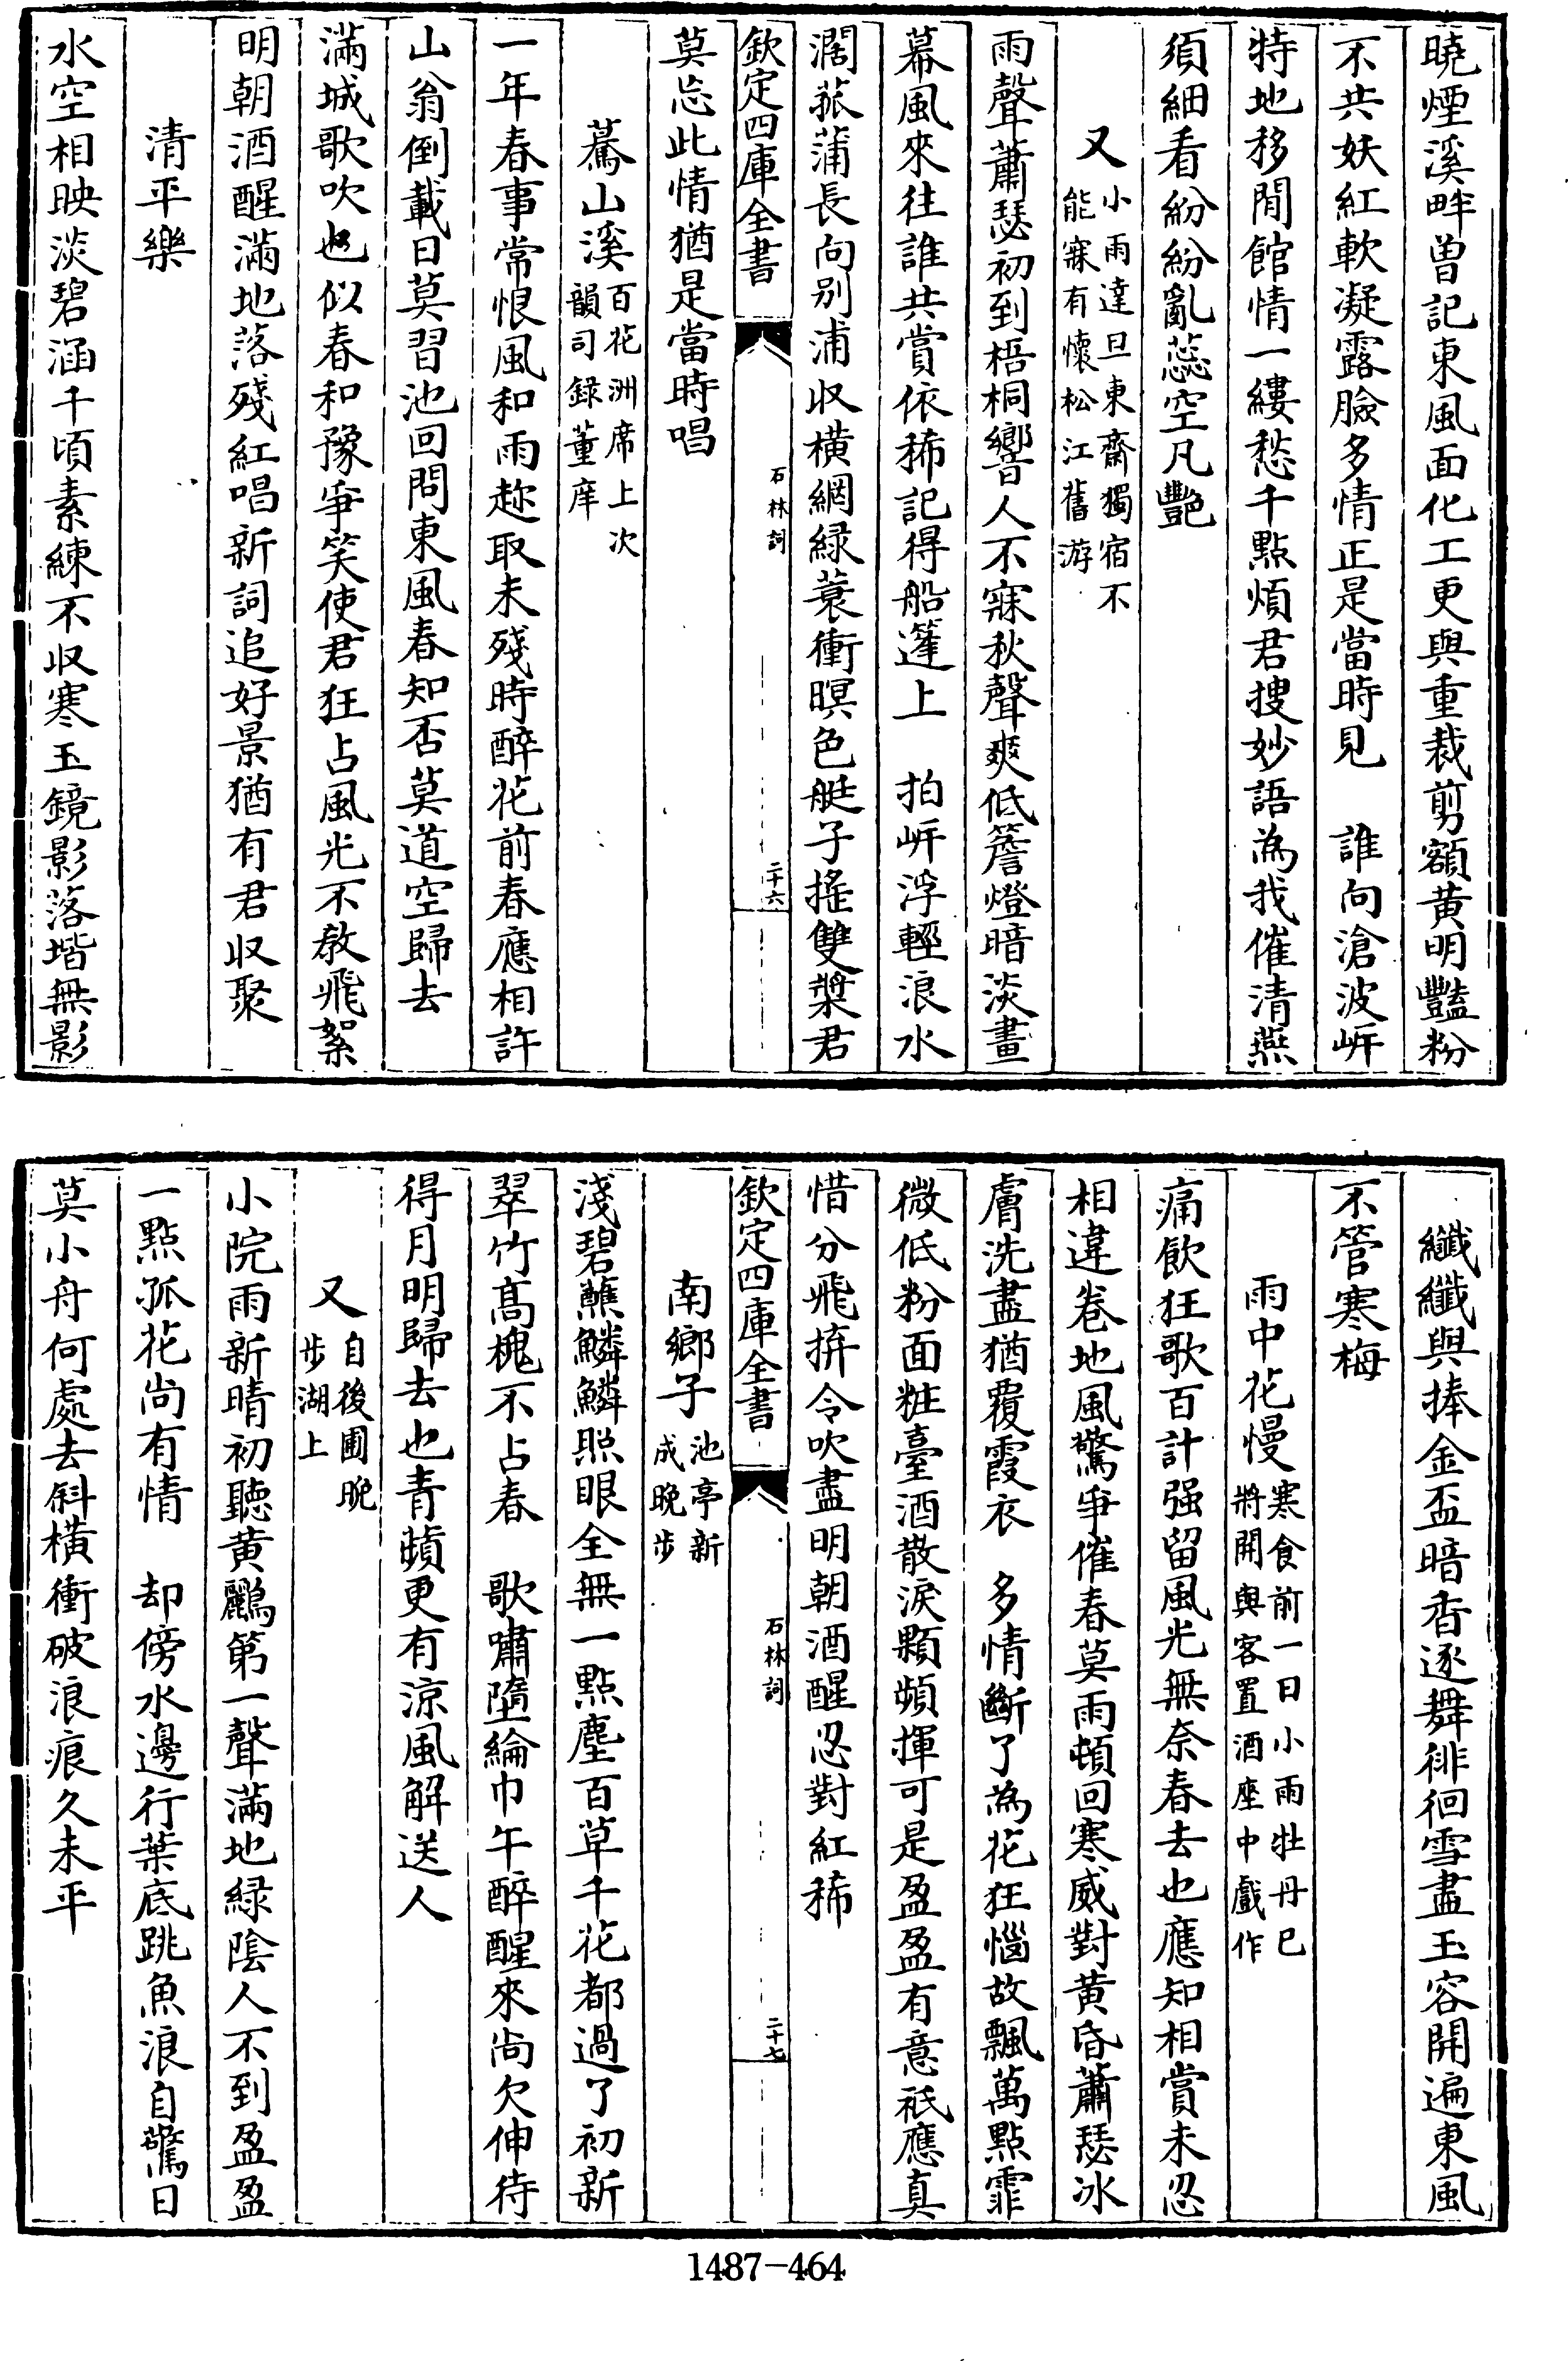 曉煙溪畔曽記東風面化工更與重裁剪額黄明豔粉
不共妖紅軟凝露臉多情正是當時見　誰向滄波岍
特地移閒館情一縷愁千點煩君搜妙語為我催清燕
須細看紛紛亂蕊空凡艷
又
小雨達旦東齋獨宿不
能寐有懷松江舊游
雨聲蕭瑟初到梧桐響人不寐秋聲爽低簷燈暗淡畫
幕風來往誰共賞依稀記得船篷上　拍岍浮輕浪水
濶菰蒲長向别浦収橫網緑蓑衝暝色艇子搖雙槳君
欽定四庫全書
石林詞
二十六
莫忘此情猶是當時唱
驀山溪
百花洲席上次
韻司錄董庠
一年春事常恨風和雨趂取未殘時醉花前春應相許
山翁倒載日莫習池回問東風春知否莫道空歸去
滿城歌吹也似春和豫爭笑使君狂占風光不教飛絮
明朝酒醒滿地落殘紅唱新詞追好景猶有君収聚
清平樂
水空相映淡碧涵千頃素練不収寒玉鏡影落堦無影
纖纖與捧金盃暗香逐舞徘徊雪盡玉容開遍東風
不管寒梅
雨中花慢
寒食前一日小雨牡丹已
將開與客置酒座中戲作
痛飲狂歌百計强留風光無奈春去也應知相賞未忍
相違卷地風驚爭催春莫雨頓回寒威對黄昏蕭瑟冰
膚洗盡猶覆霞衣　多情斷了為花狂惱故飄萬點霏
微低粉面粧臺酒散淚顆頻揮可是盈盈有意祇應真
惜分飛拚令吹盡明朝酒醒忍對紅稀
欽定四庫全書
石林詞
二十七
南鄉子
池亭新
成晚步
淺碧蘸鱗鱗照眼全無一點塵百草千花都過了初新
翠竹高槐不占春　歌嘯墮綸巾午醉醒來尚欠伸待
得月明歸去也青蘋更有涼風解送人
又
自後圃晚
步湖上
小院雨新晴初聽黄鸝第一聲滿地緑陰人不到盈盈
一點孤花尚有情　却傍水邊行葉底跳魚浪自驚日
莫小舟何處去斜橫衝破浪痕久未平
1487-464